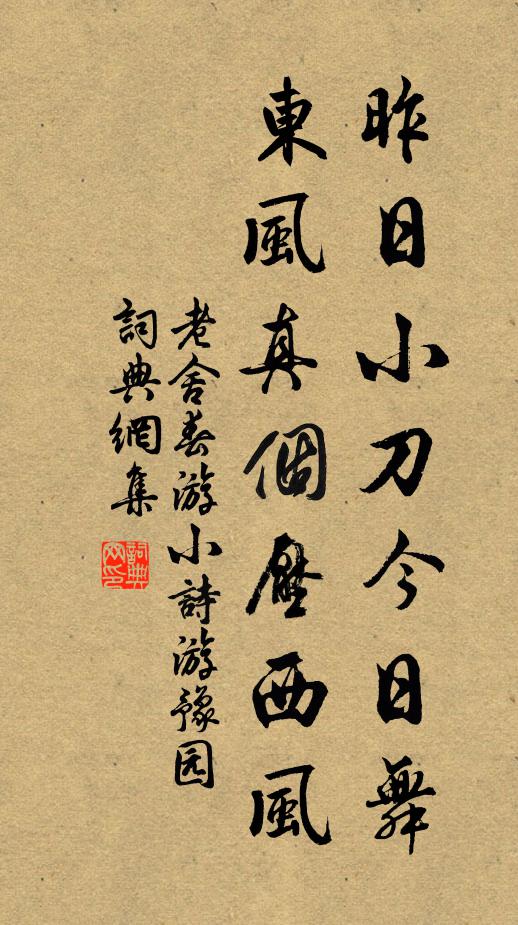 昨日小刀今日舞
東風真個壓西風
老舍春游小詩游豫园
詞典網集
詞典網印